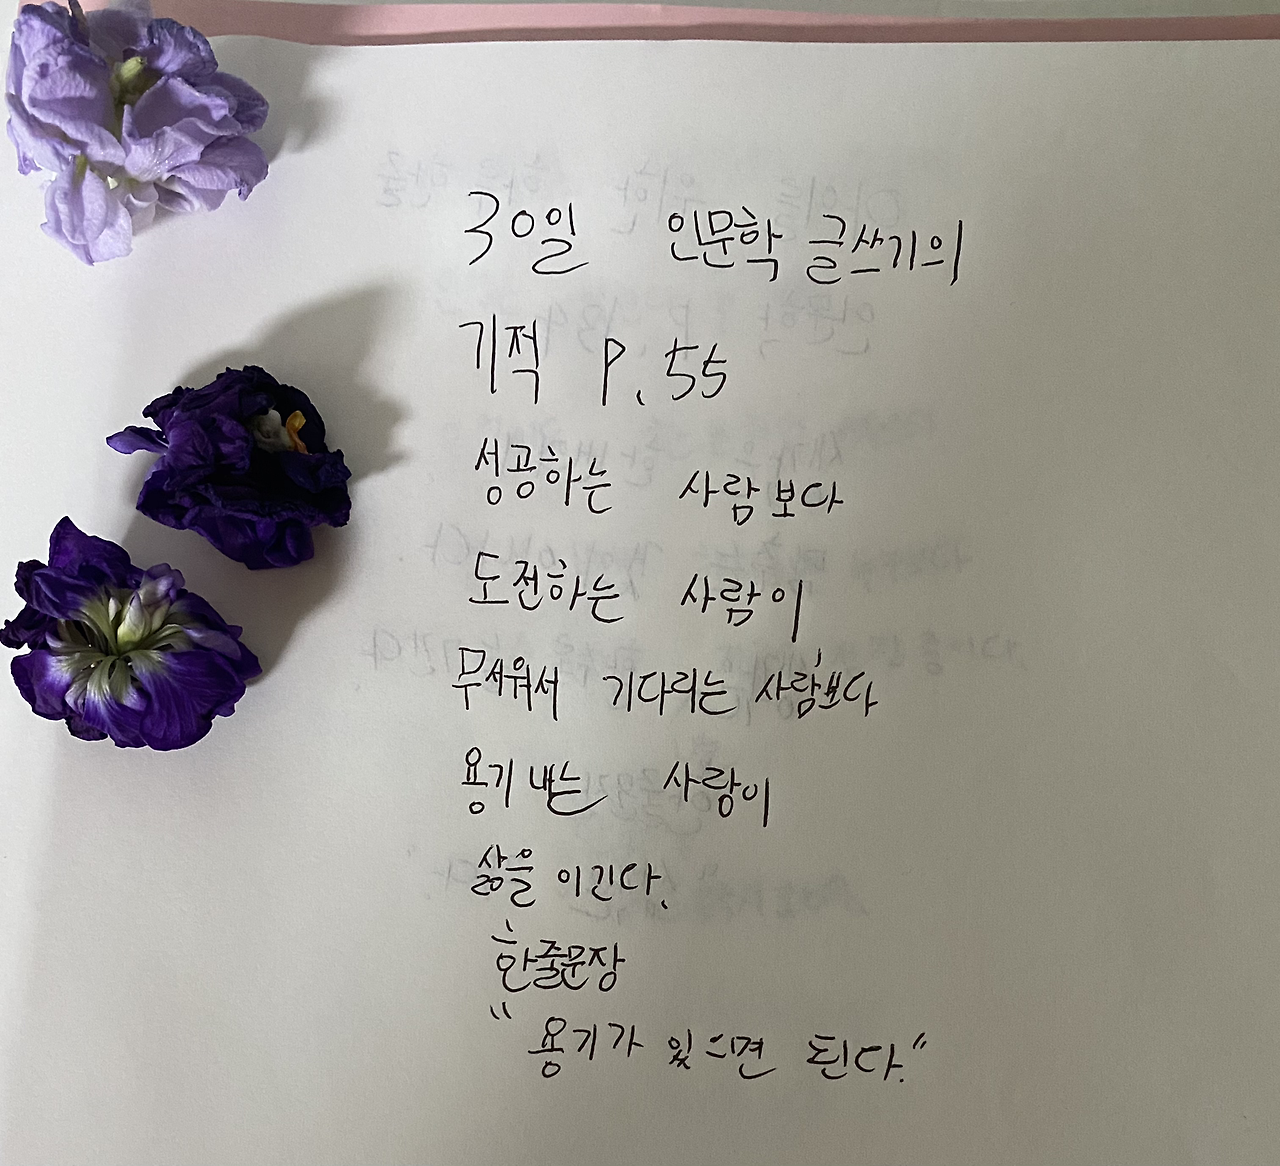 30일 인문학 글쓰기의
기적 P.55
성공하는 사람보다
도전하는 사람이
무서워서 기다리는 사람보다
용기 내는 사람이
삶을 이긴다.
한줄문장
"용기가 있으면 된다."